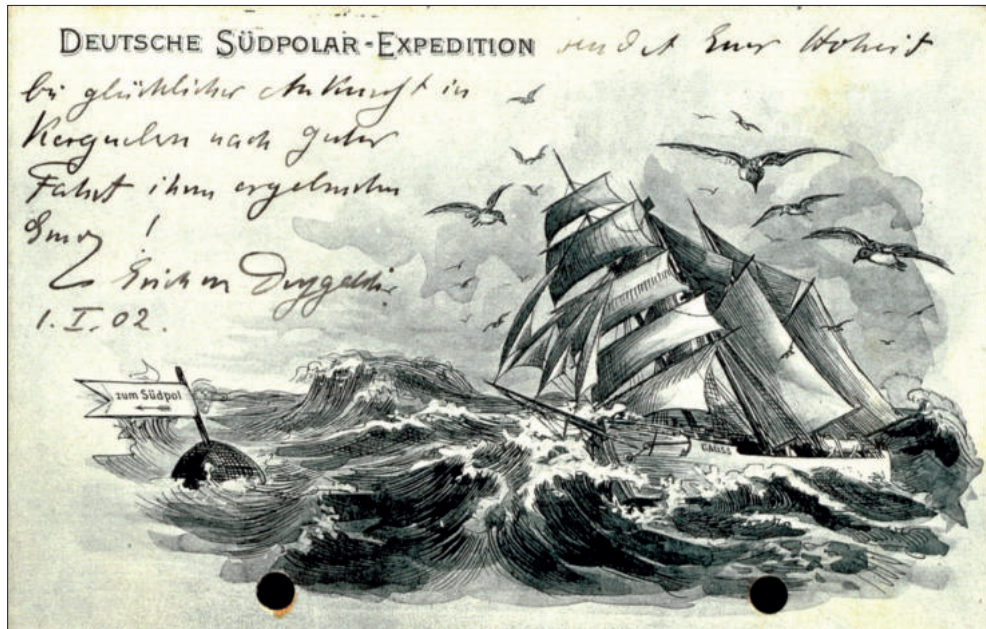 DEUTSCHE SÜDPOLAR-EXPEDITION sendet Euer Hoheit
bei glücklicher Ankunft in
Kerguelen nach guter
Fahrt ihren ergebensten
!
Erich von Drygalski.
1. I. 02.
zum Südpol
GAUSS